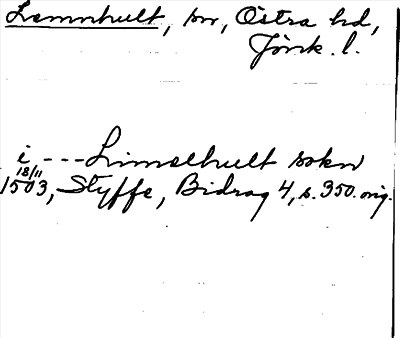 Lemnhult, sn, Östra hd,
Jönk. l.
i --- Limelhult sokn
18/11
1503, Styffe, Bidrag 4, s. 350. orig.